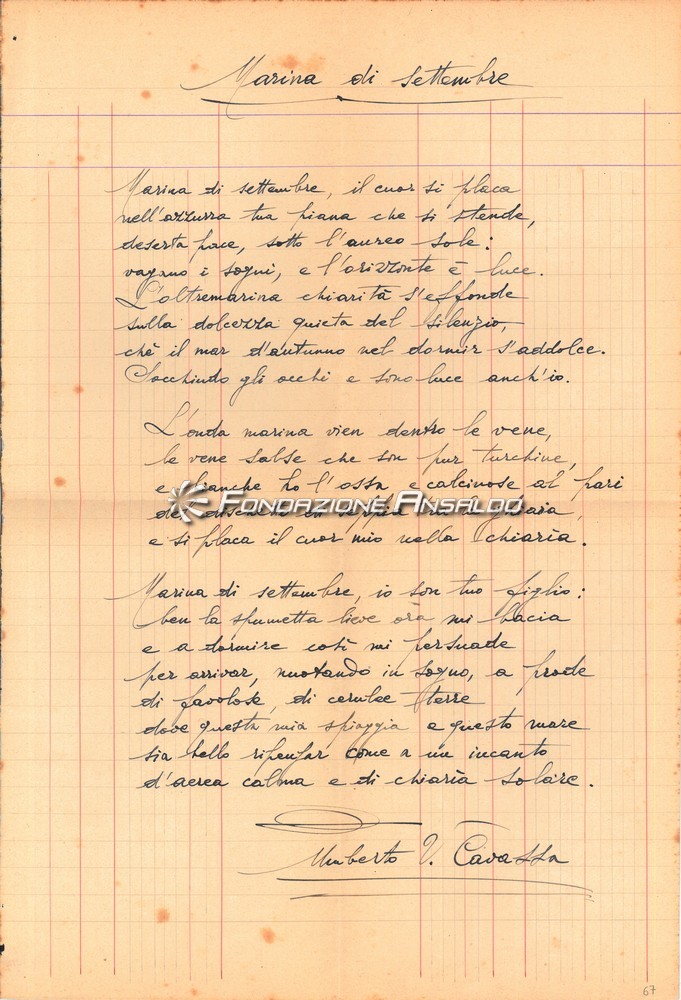 Marina di settembre
Marina di settembre, il cuor si placa
nell'azzurra tua piana che si stende,
deserta pace, sotto l'aureo sole:
vagano i sogni, e l'orizzonte è luce.
L'oltremarina chiarità s'effonde
sulla dolcezza quieta del silenzio,
chè il mar d'autunno nel dormir s'addolce.
Socchiudo gli occhi e sono luce anch'io.
L'onda marina vien dentro le vene,
le vene salse che son pur turchine,
e bianche ho l'ossa e calcinose al pari
FONDAZIONE ANSALDO
di seppia ghiaia,
e si placa il cuor mio nella chiaria.
Marina di settembre, io son tuo figlio:
ben la spumetta lieve ora mi bacia
e a dormire così mi persuade
per arrivar, nuotando in sogno, a prode
di favolose, di cerulee terre
dove questa mia spiaggia e questo mare
sia bello ripensar come a un incanto
d'aerea calma e di chiaria solare.
Umberto V. Cavassa
67